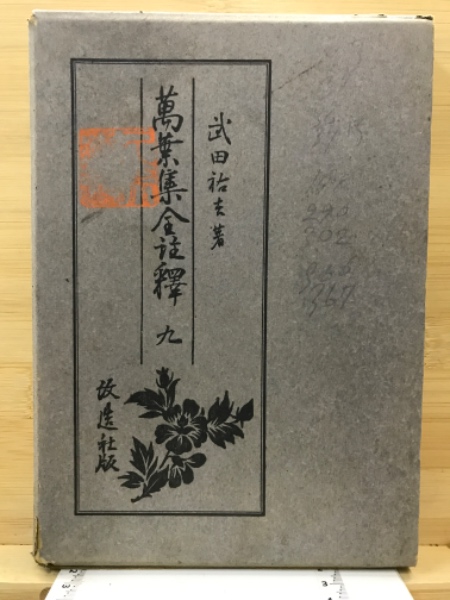 武田祐吉著
萬葉集全註釋 九
改造社版
290
302